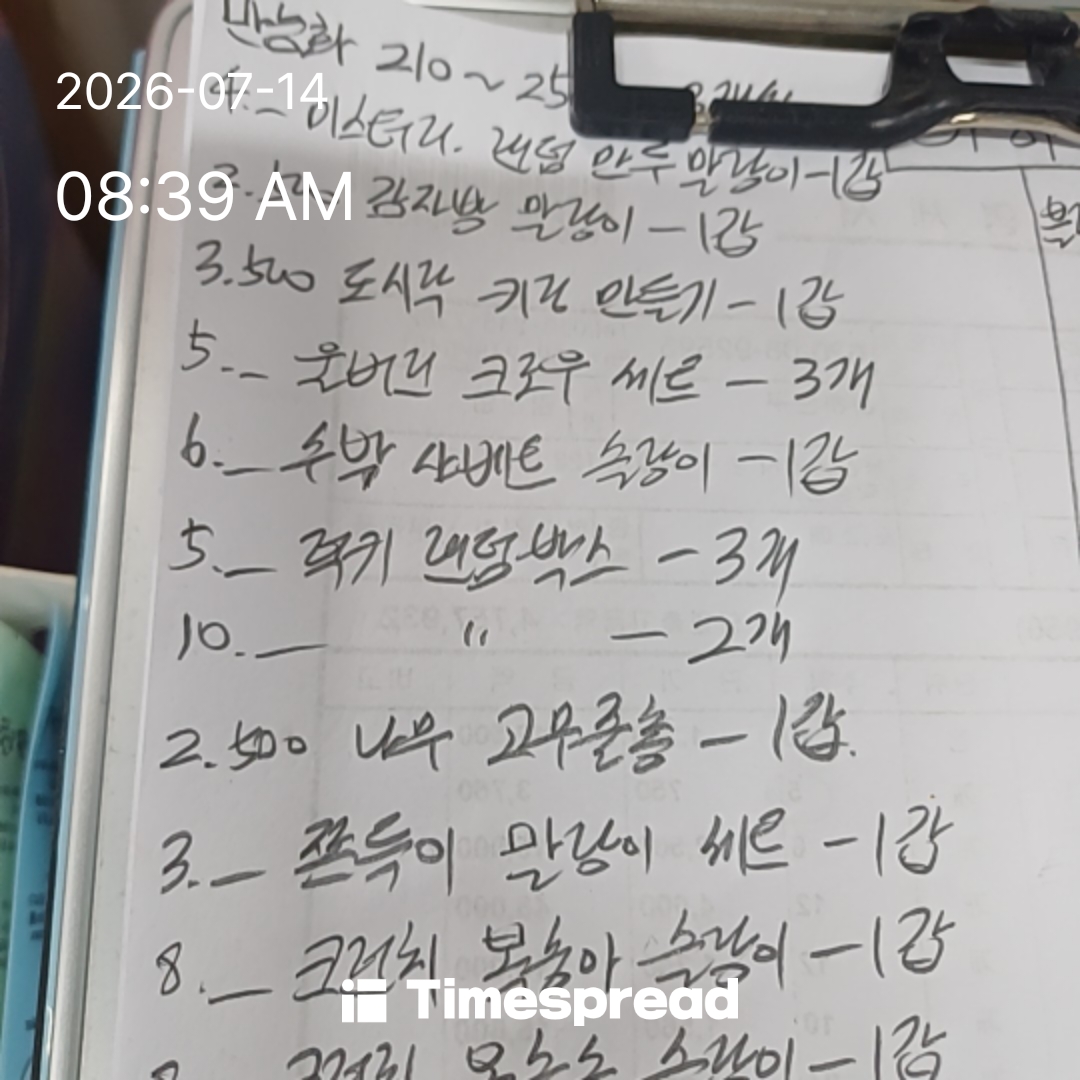 만능화 210~25
2026-07-14
4.— 미스터리. 랜덤 만두 말랑이-1갑
08:39 AM
감자빵 말랑이 - 1갑
3.500 도시락 키링 만들기 - 1갑
5.— 웃버린 크로우 세트 - 3개
6.— 수박 샤베트 슬랑이 - 1갑
5.— 럭키 랜덤박스 - 3개
10.— " - 2개
2.500 나무 고무줄총 - 1갑.
3.— 쫀득이 말랑이 세트 - 1갑
8.— 크런치 복숭아 슬랑이 - 1갑
Timespread
슬랑이 - 1갑